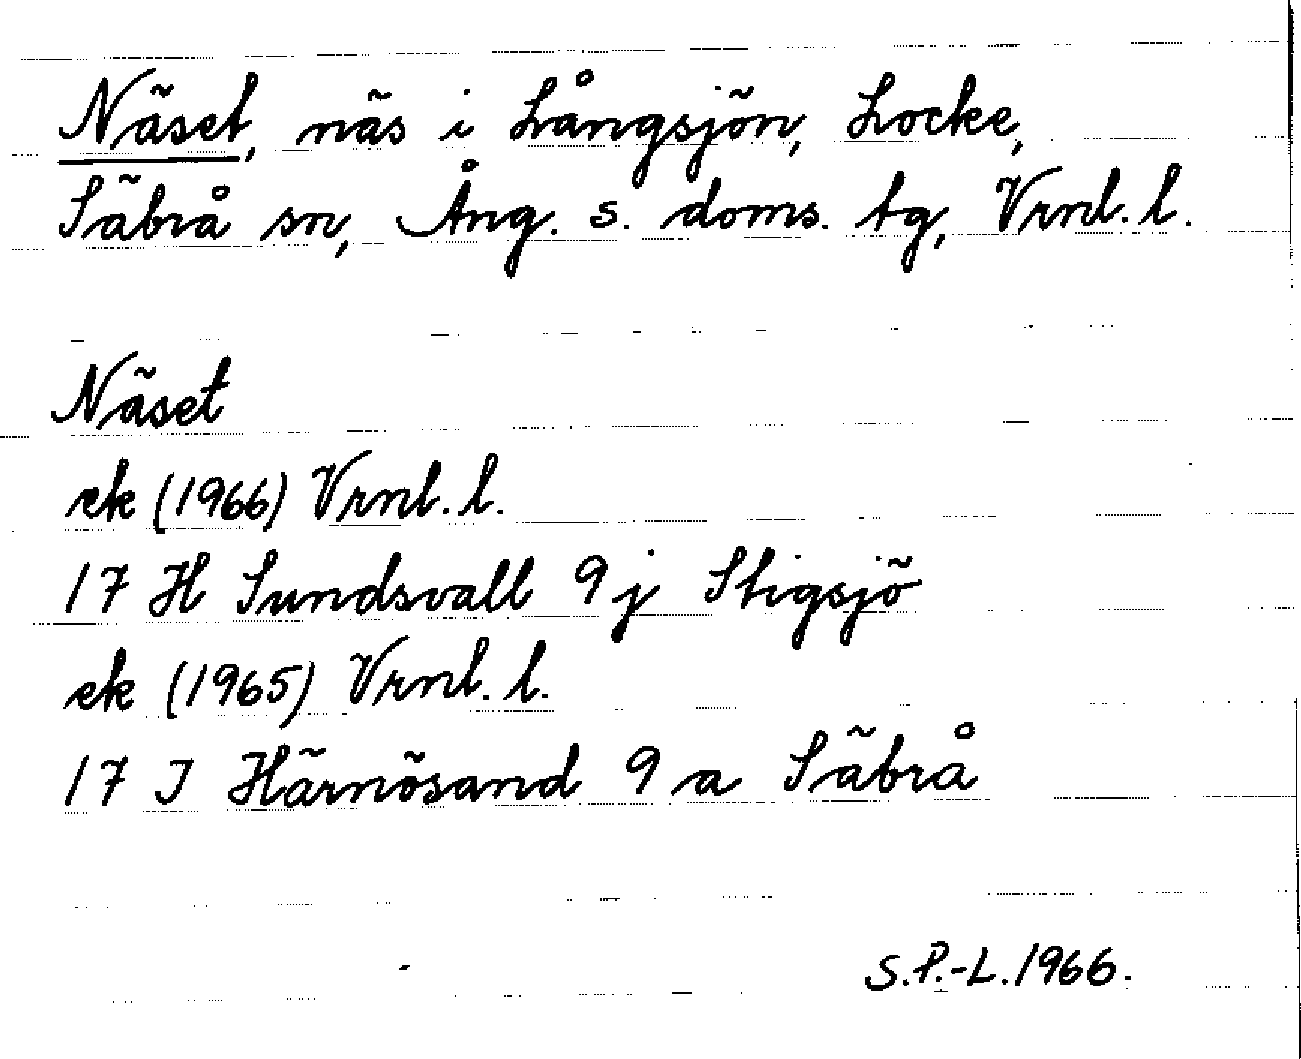 Näset, näs i Långsjön, Locke,
Säbrå sn, Ång. s. doms. tg, Vrnl. l.
Näset
ek (1966) Vrnl. l.
17 H Sundsvall 9 j Stigsjö
ek (1965) Vrnl. l.
17 I Härnösand 9 a Säbrå
S.P.-L. 1966.